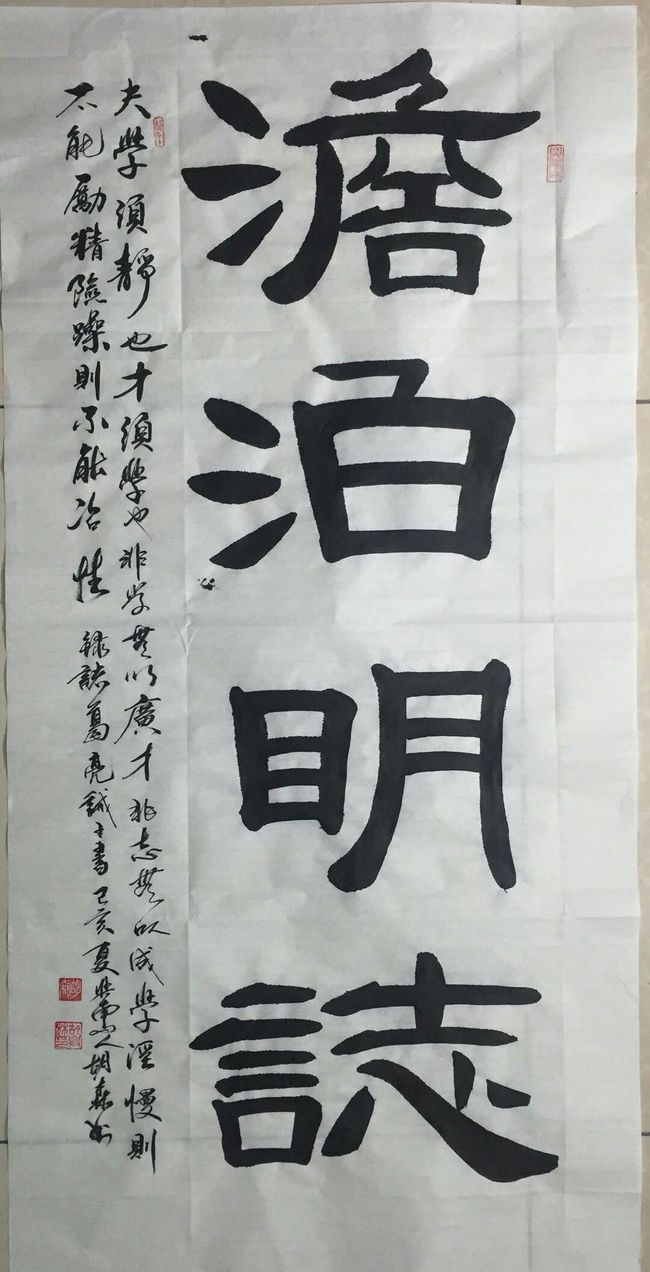 澹泊明誌
夫學須靜也才須學也非学無以廣才非志無以成學淫慢則
不能勵精險躁則不能冶性 錄諸葛亮誡子書 己亥夏 人胡森